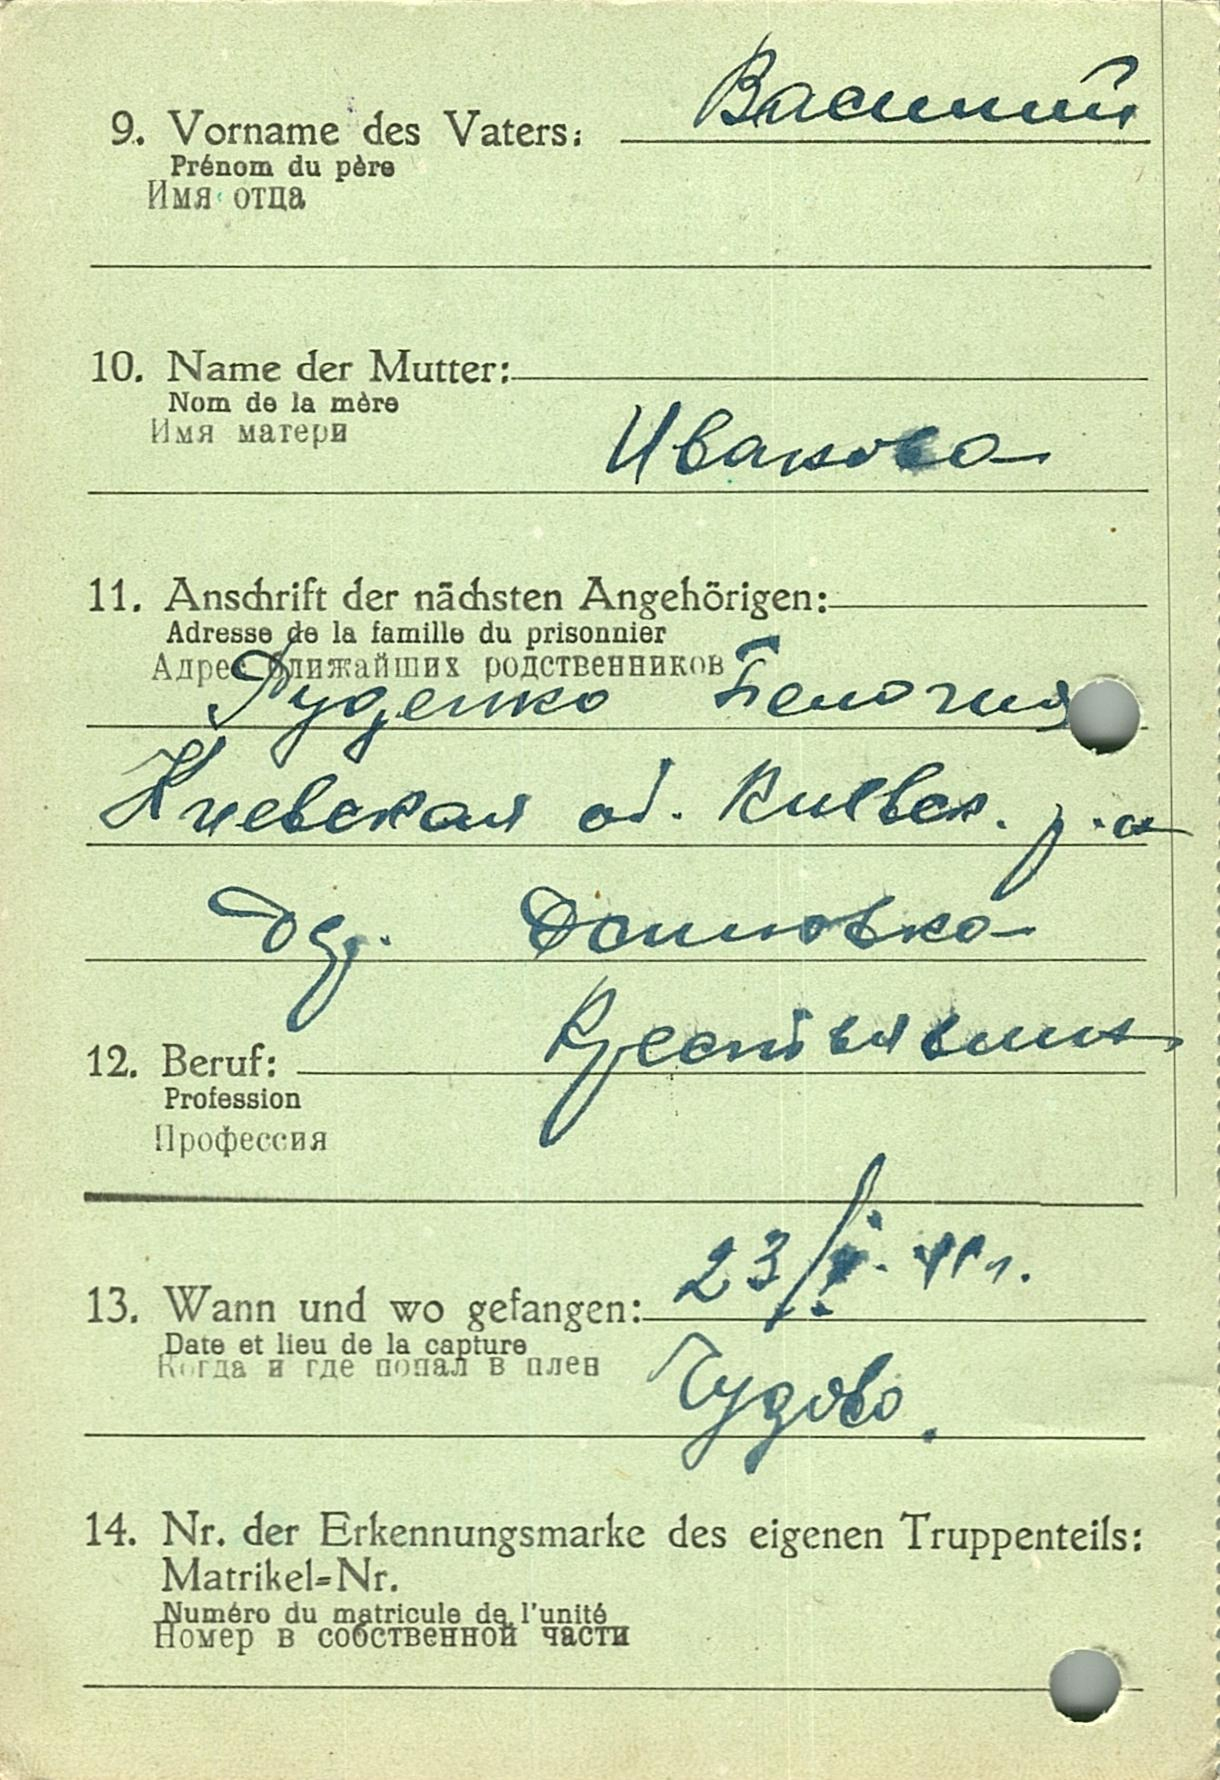 9. Vorname des Vaters: Василий
Prénom du père
Имя отца
10. Name der Mutter:
Nom de la mère
Имя матери
Иванова
11. Anschrift der nächsten Angehörigen:
Adresse de la famille du prisonnier
Адрес ближайших родственников
Руденко
Киевская об. Киевск. р-н
12. Beruf:
Profession
Профессия
13. Wann und wo gefangen: 23/
Date et lieu de la capture
Когда и где попал в плен
Чудово.
14. Nr. der Erkennungsmarke des eigenen Truppenteils:
Matrikel=Nr.
Numéro du matricule de l'unité
Номер в собственной части